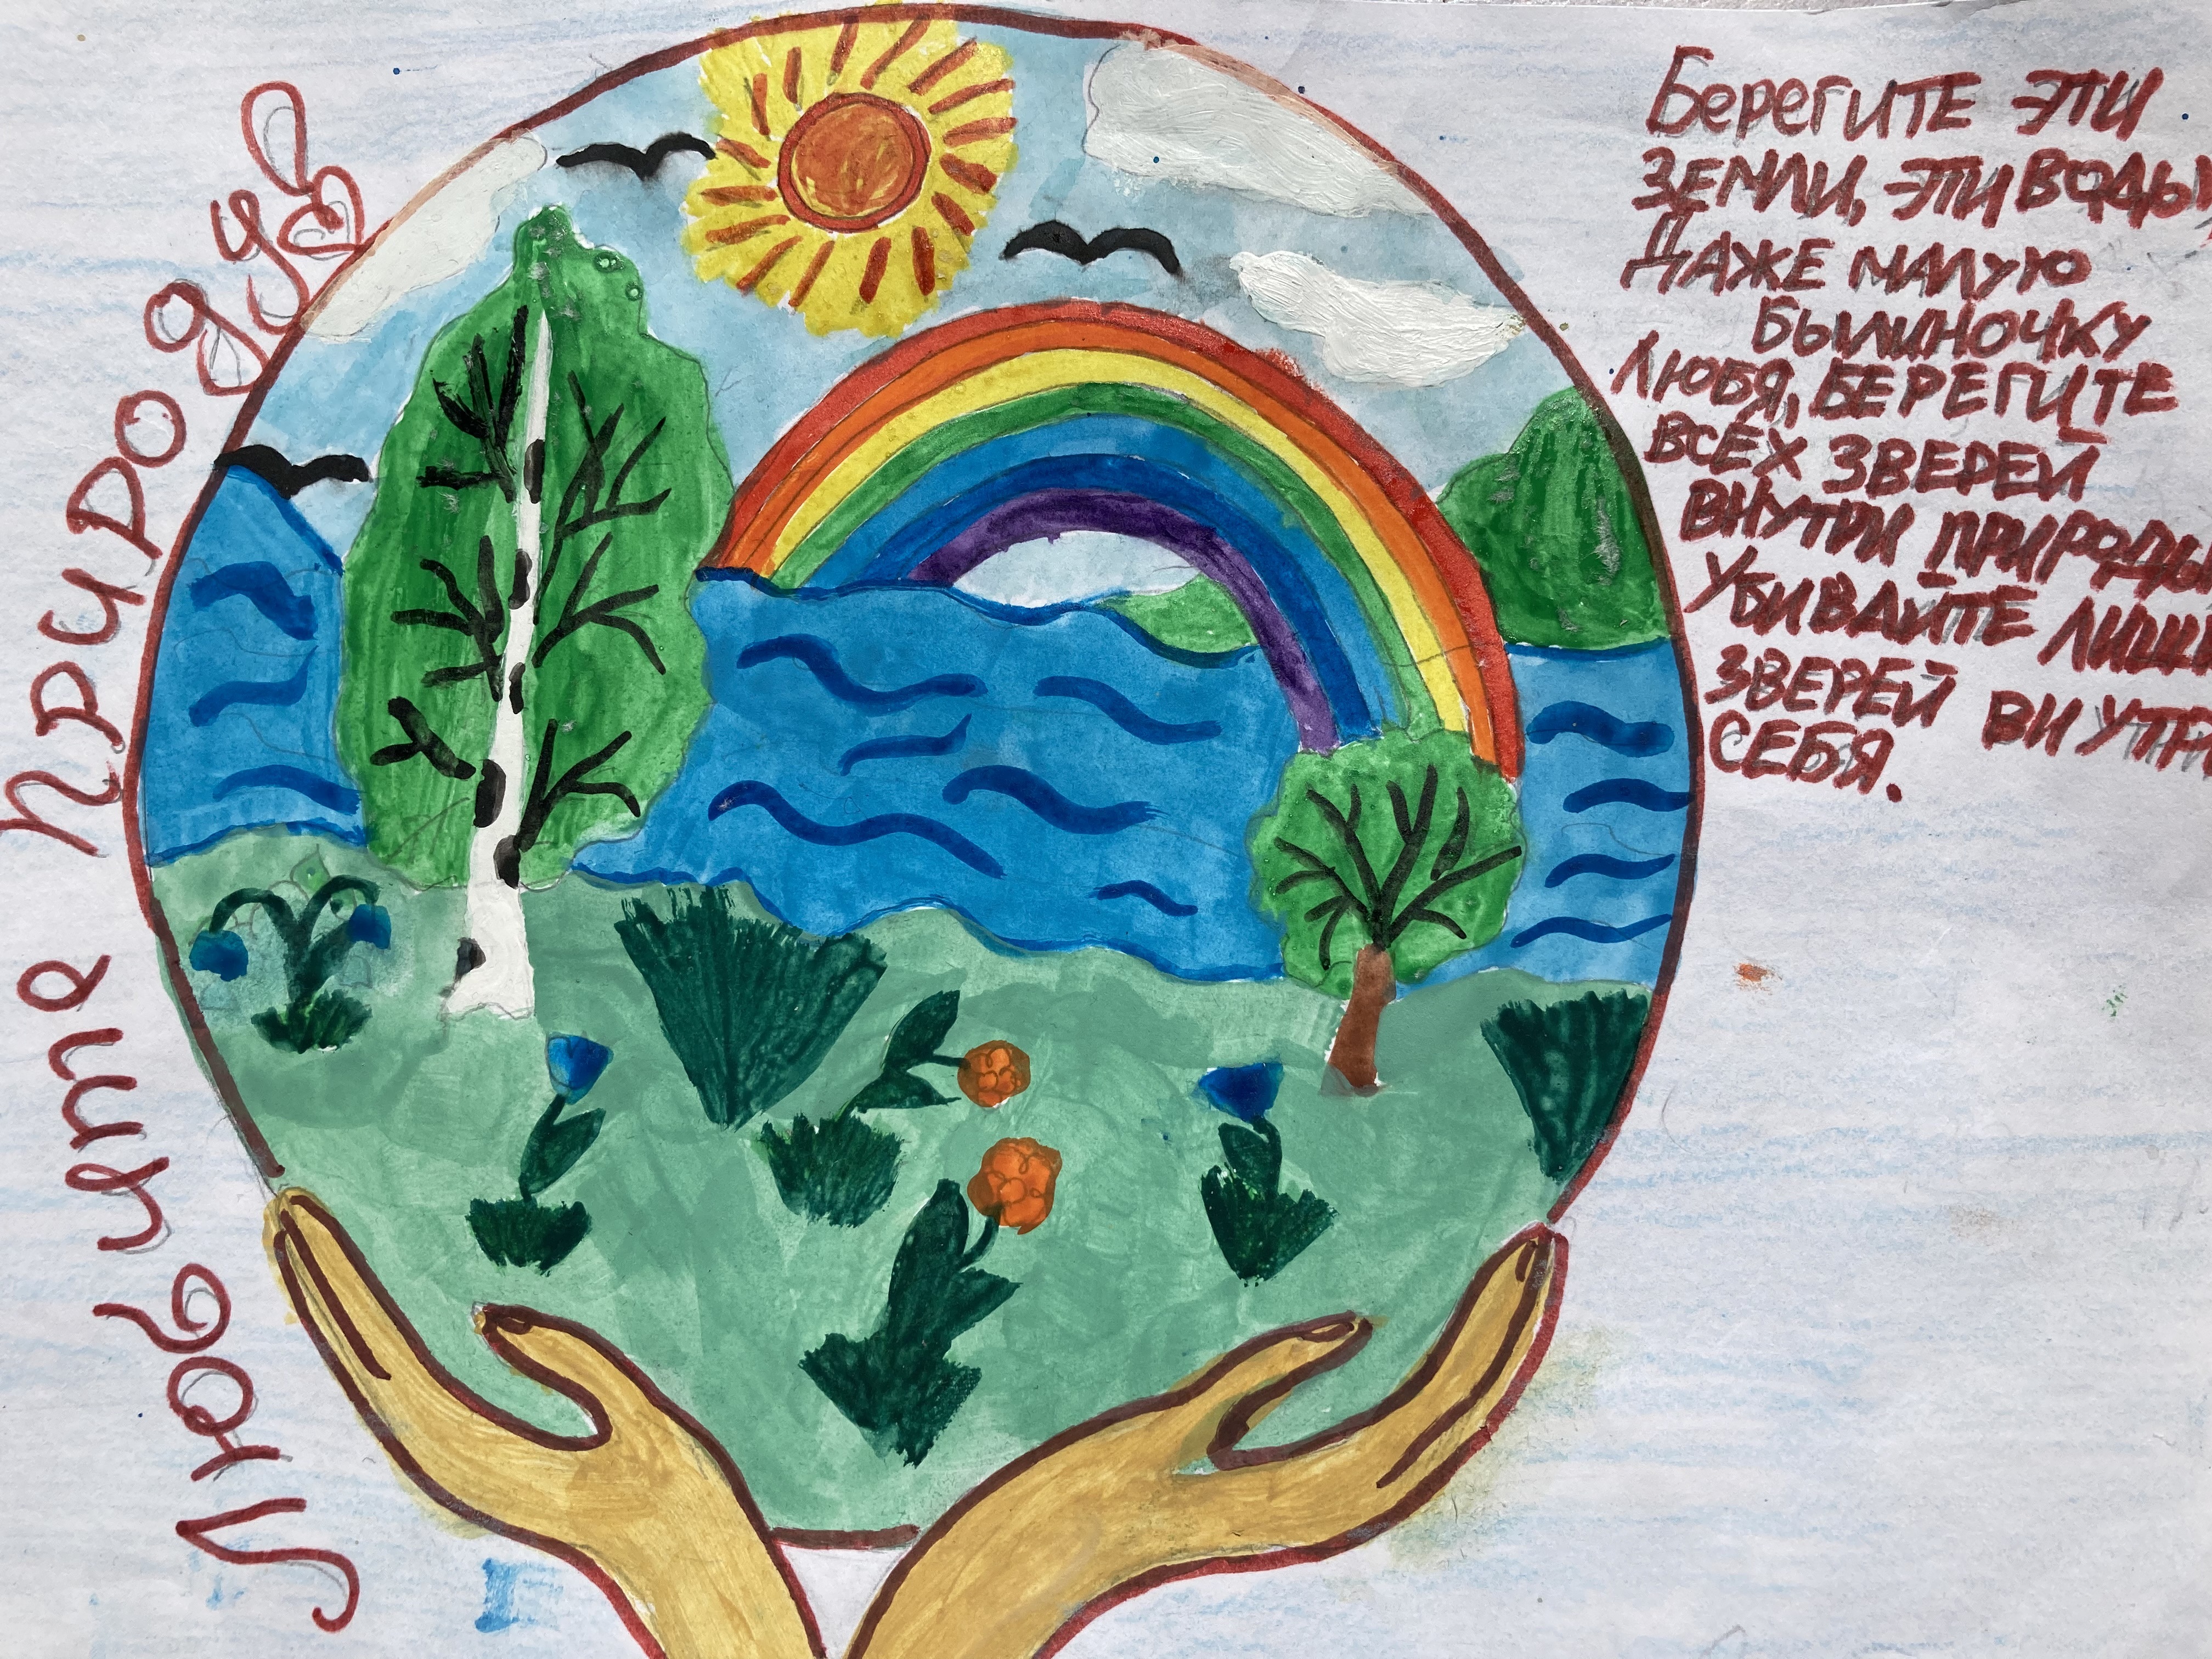 Любите природу
Берегите эти
земли, эти воды,
Даже малую
былиночку
любя, берегите
всех зверей
внутри природы
Убивайте лишь
зверей внутри
себя.